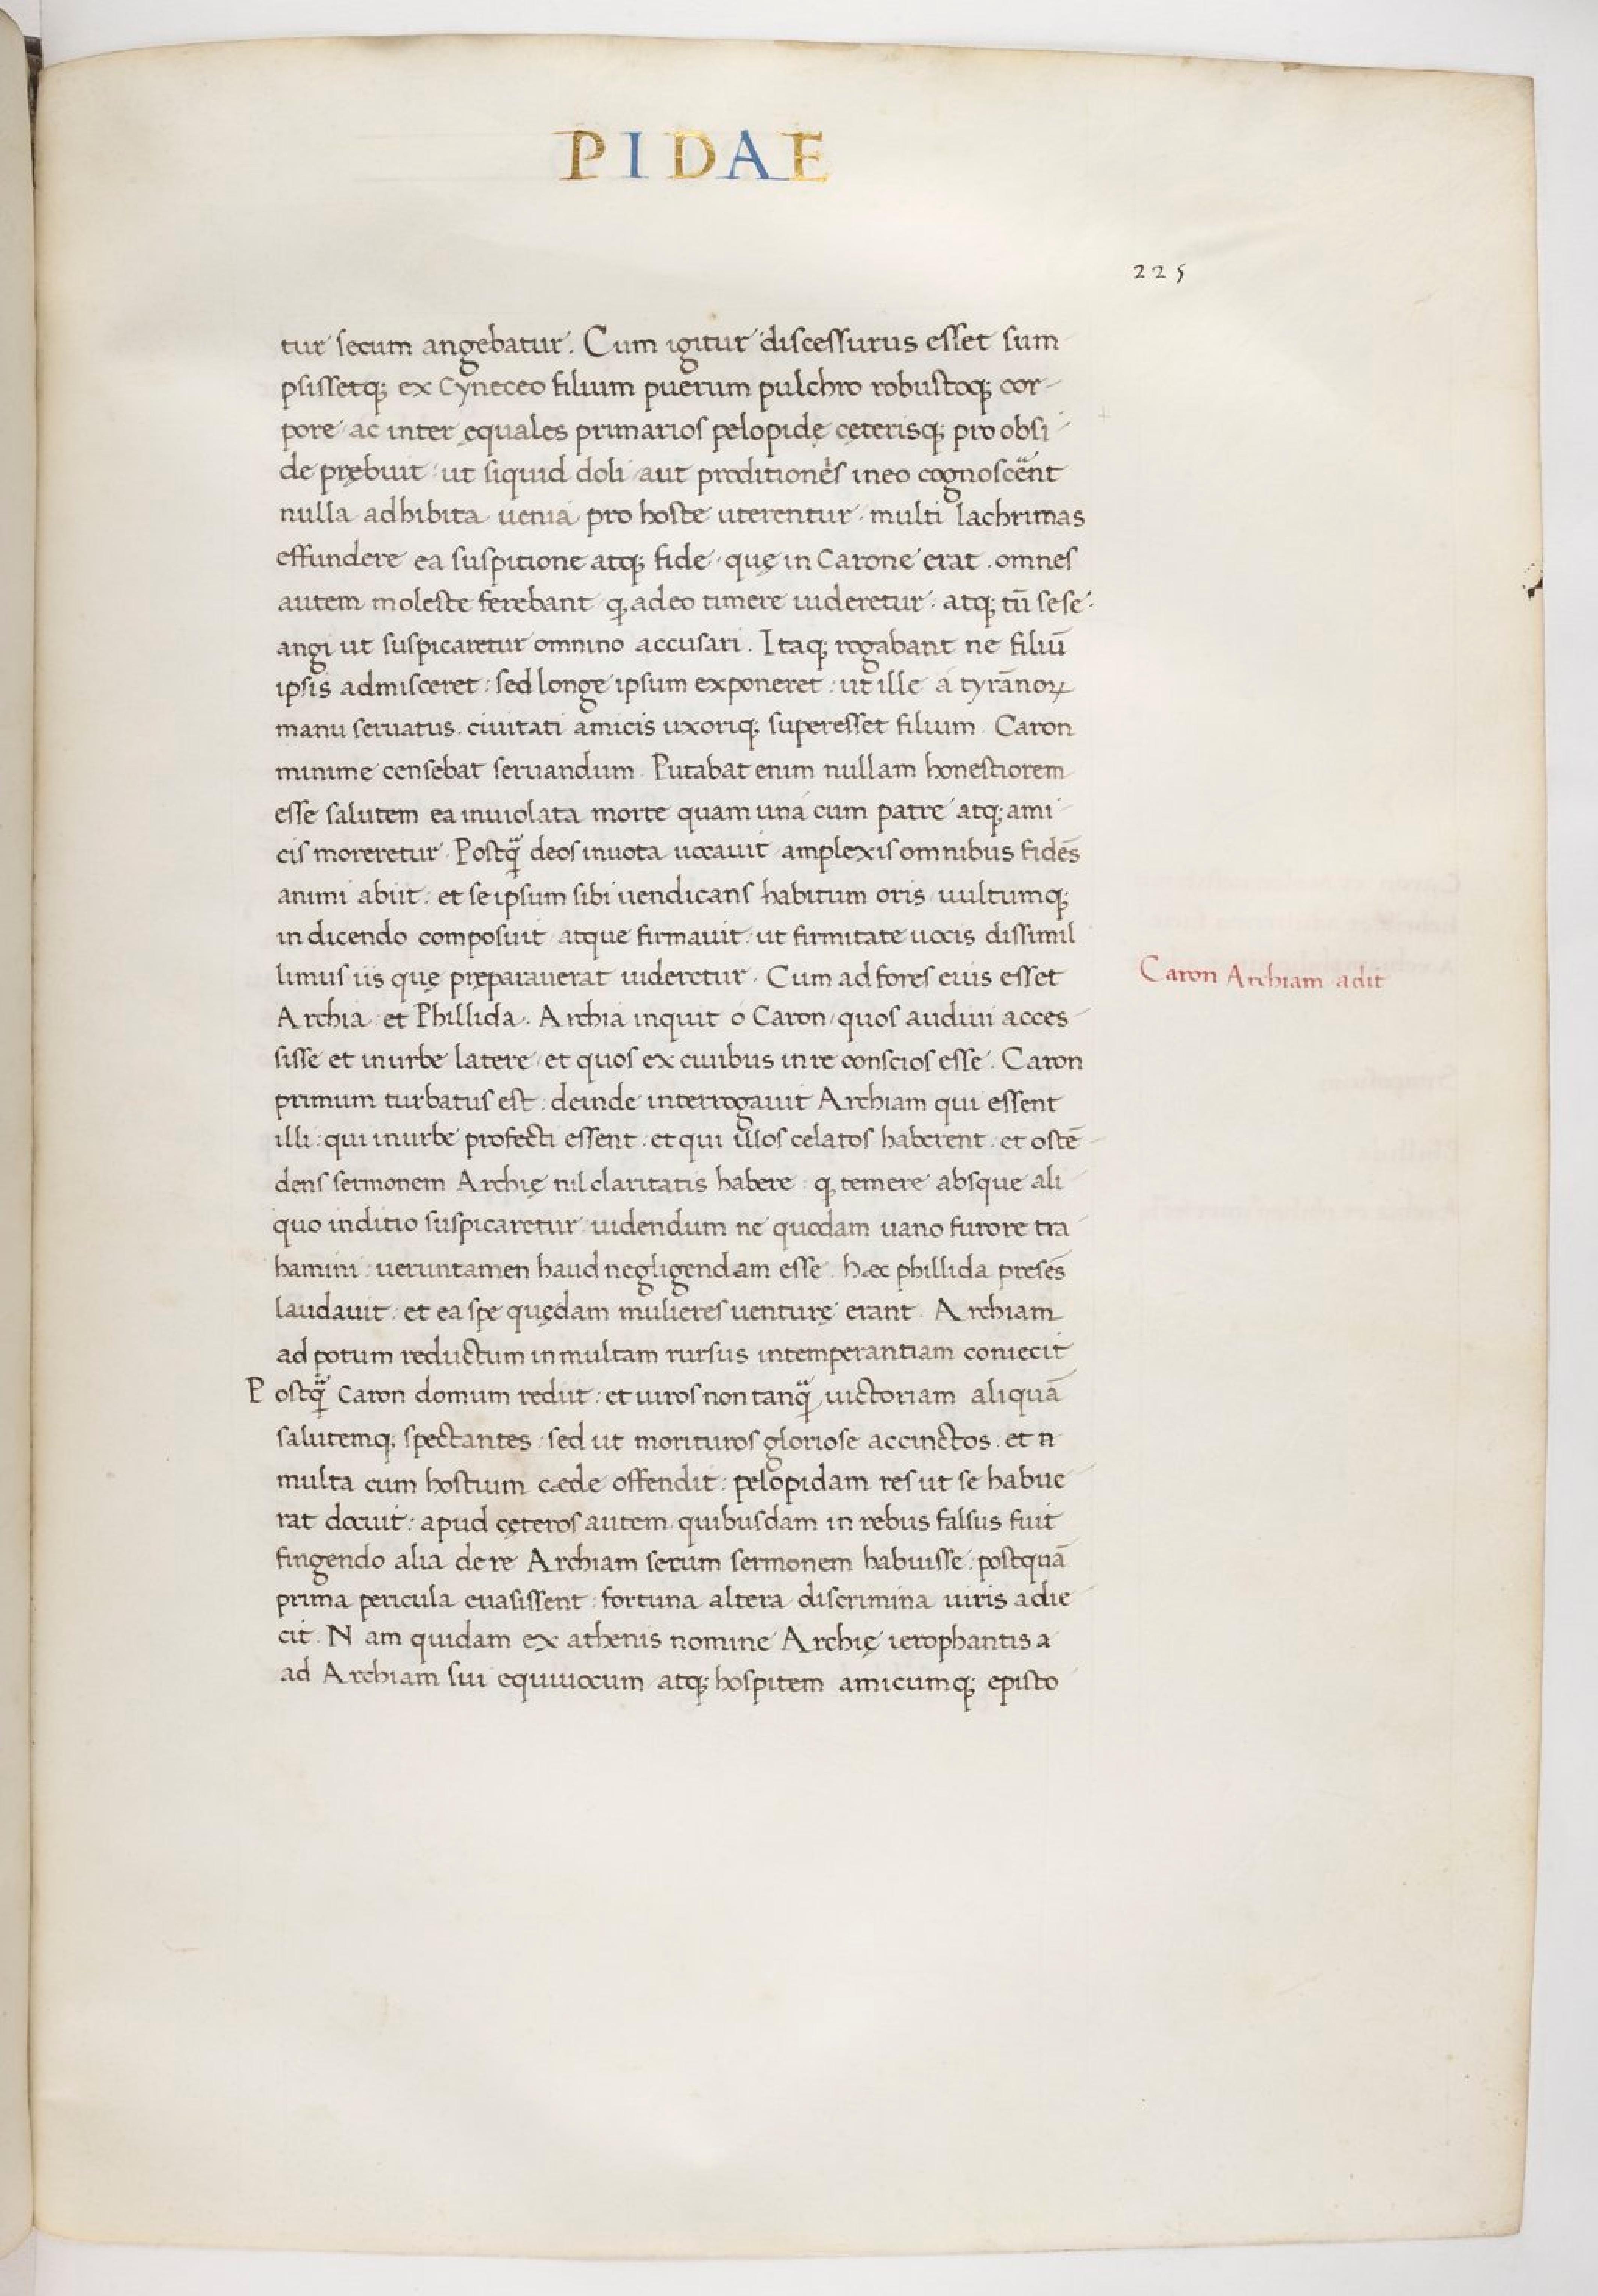 PIDAE
225
tur secum angebatur. Cum igitur discessurus esset sum
psissetq; ex Cyneceo filium puerum pulchro robustoq; cor-
pore ac inter ęquales primarios pelopidę cęterisq; pro obsi
de prębuit: ut siquid doli aut proditionẽs ineo cognoscẽnt
nulla adhibita uenia pro hoste uterentur. multi lachrimas
effundere ea suspitione atq; fide quę in Carone erat. omnes
autem moleste ferebant ꝙ adeo timere uideretur: atq; tũ sese
angi ut suspicaretur omnino accusari. Itaq; rogabant ne filiũ
ipsis admisceret: sed longe ipsum exponeret: ut ille á tyrãnoꝝ
manu seruatus. ciuitati amicis uxoriq; superesset filium. Caron
minime censebat seruandum. Putabat enim nullam honestiorem
esse salutem ea inuiolata morte quam uná cum patre atq; ami
cis moreretur. Postq̃ deos inuota uocauit amplexis omnibus fidẽs
animi abiit: et se ipsum sibi uendicans habitum oris uultumq;
in dicendo composuit atque firmauit: ut firmitate uocis dissimil
limus iis quę pręparauerat uideretur. Cum ad fores eius esset
Caron Archiam adit
Archia: et Phillida. Archia inquit o Caron quos audiui acces
sisse et inurbe latere et quos ex ciuibus inre conscios esse. Caron
primum turbatus est: deinde interrogauit Archiam qui essent
illi: qui inurbe profecti essent: et qui illos celatos haberent: et ostẽ
dens sermonem Archię nil claritatis habere: ꝙ temere absque ali
quo inditio suspicaretur uidendum ne quodam uano furore tra
hamini: ueruntamen haud negligendam esse. hæc phillida presẽs
laudauit: et ea spe quędam mulieres uenturę erant. Archiam
ad potum reductum in multam rursus intemperantiam coniecit
Postq̃ Caron domum rediit: et uiros non tanq̃ uictoriam aliquã
salutemq; spectantes: sed ut morituros gloriose accinctos. et n
multa cum hostium cæde offendit: pelopidam res ut se habue
rat docuit: apud cęteros autem quibusdam in rebus falsus fuit
fingendo alia de re Archiam secum sermonem habuisse. postquã
prima pericula euasissent: fortuna altera discrimina uiris adie
cit. Nam quidam ex athenis nomine Archię ierophantis a
ad Archiam sui equiuocum atq; hospitem amicumq; episto